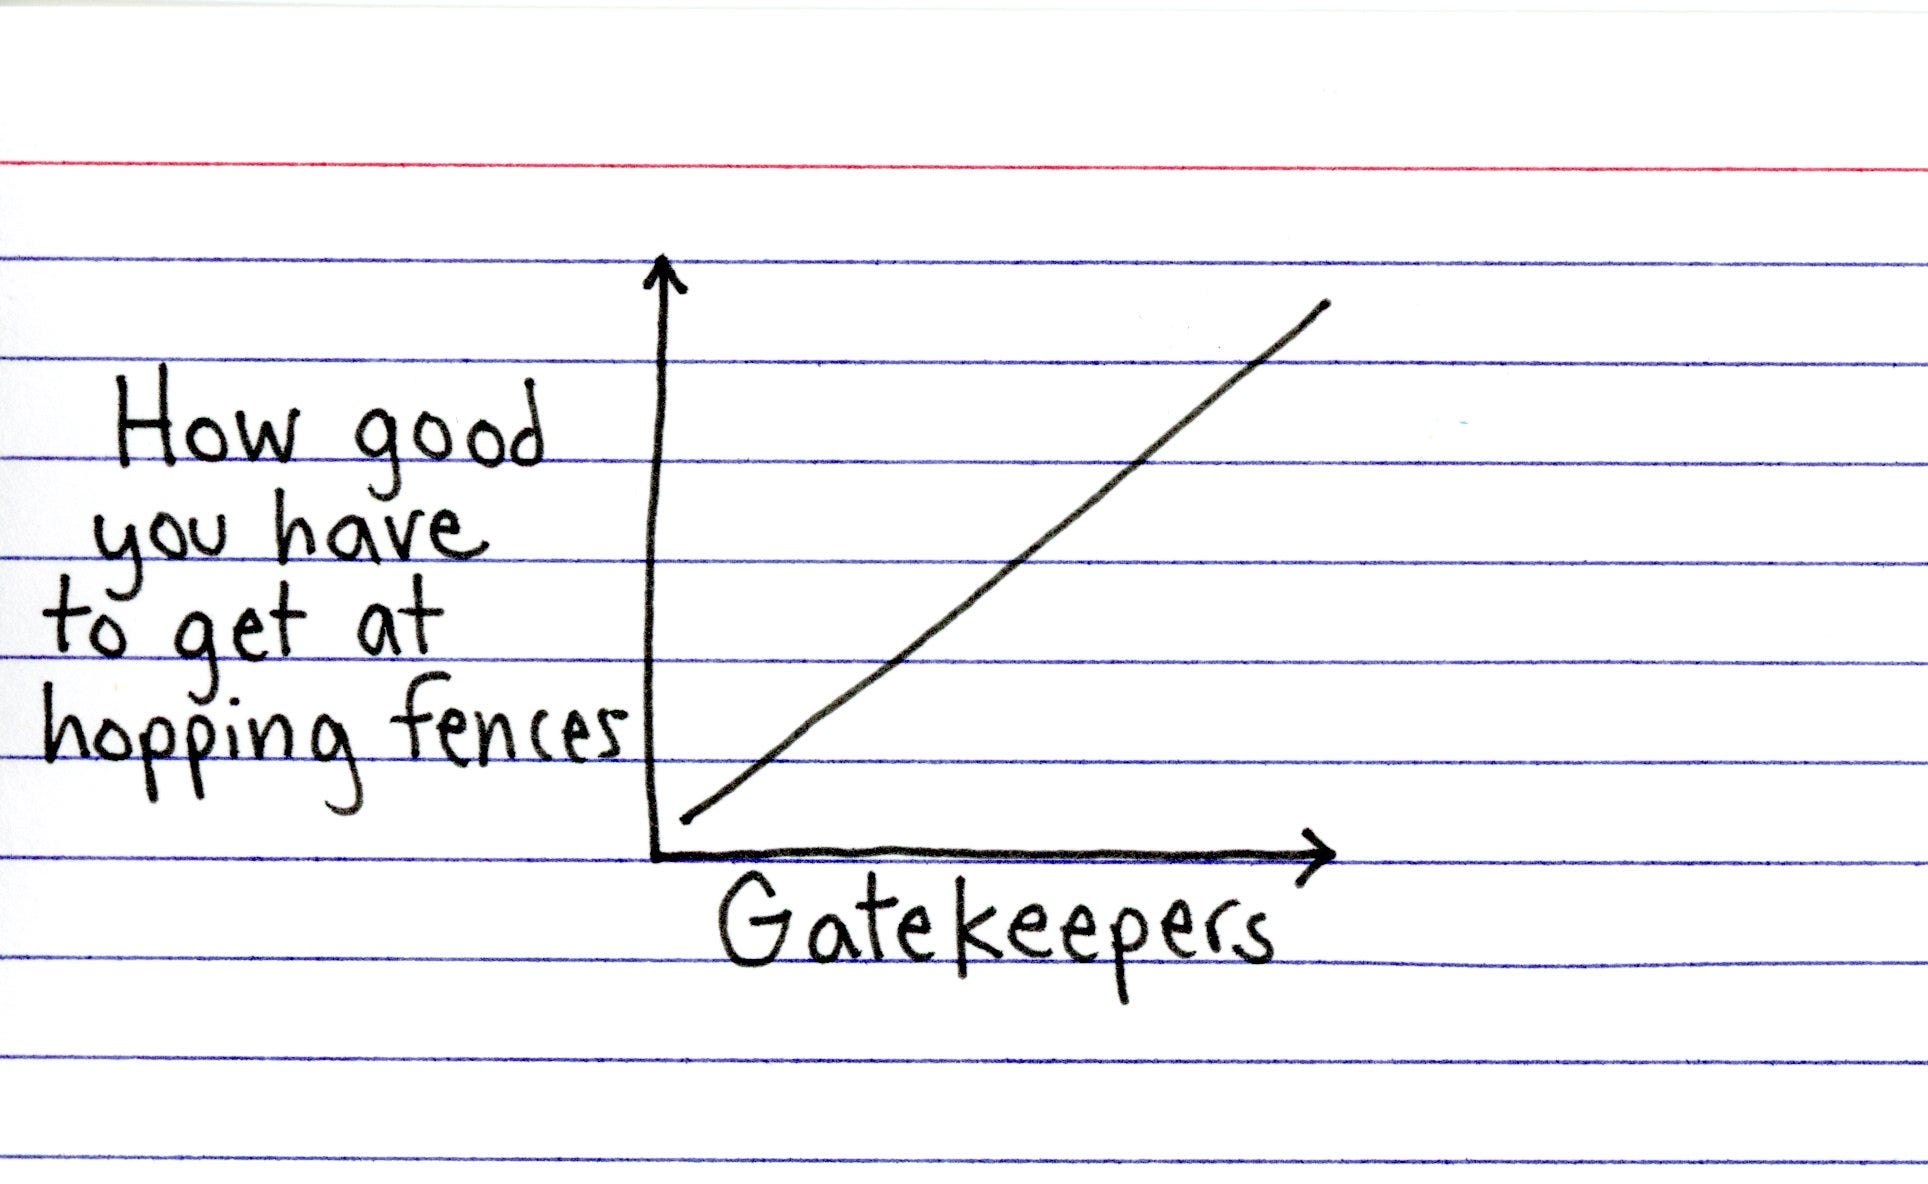 How good
you have
to get at
hopping fences
Gatekeepers